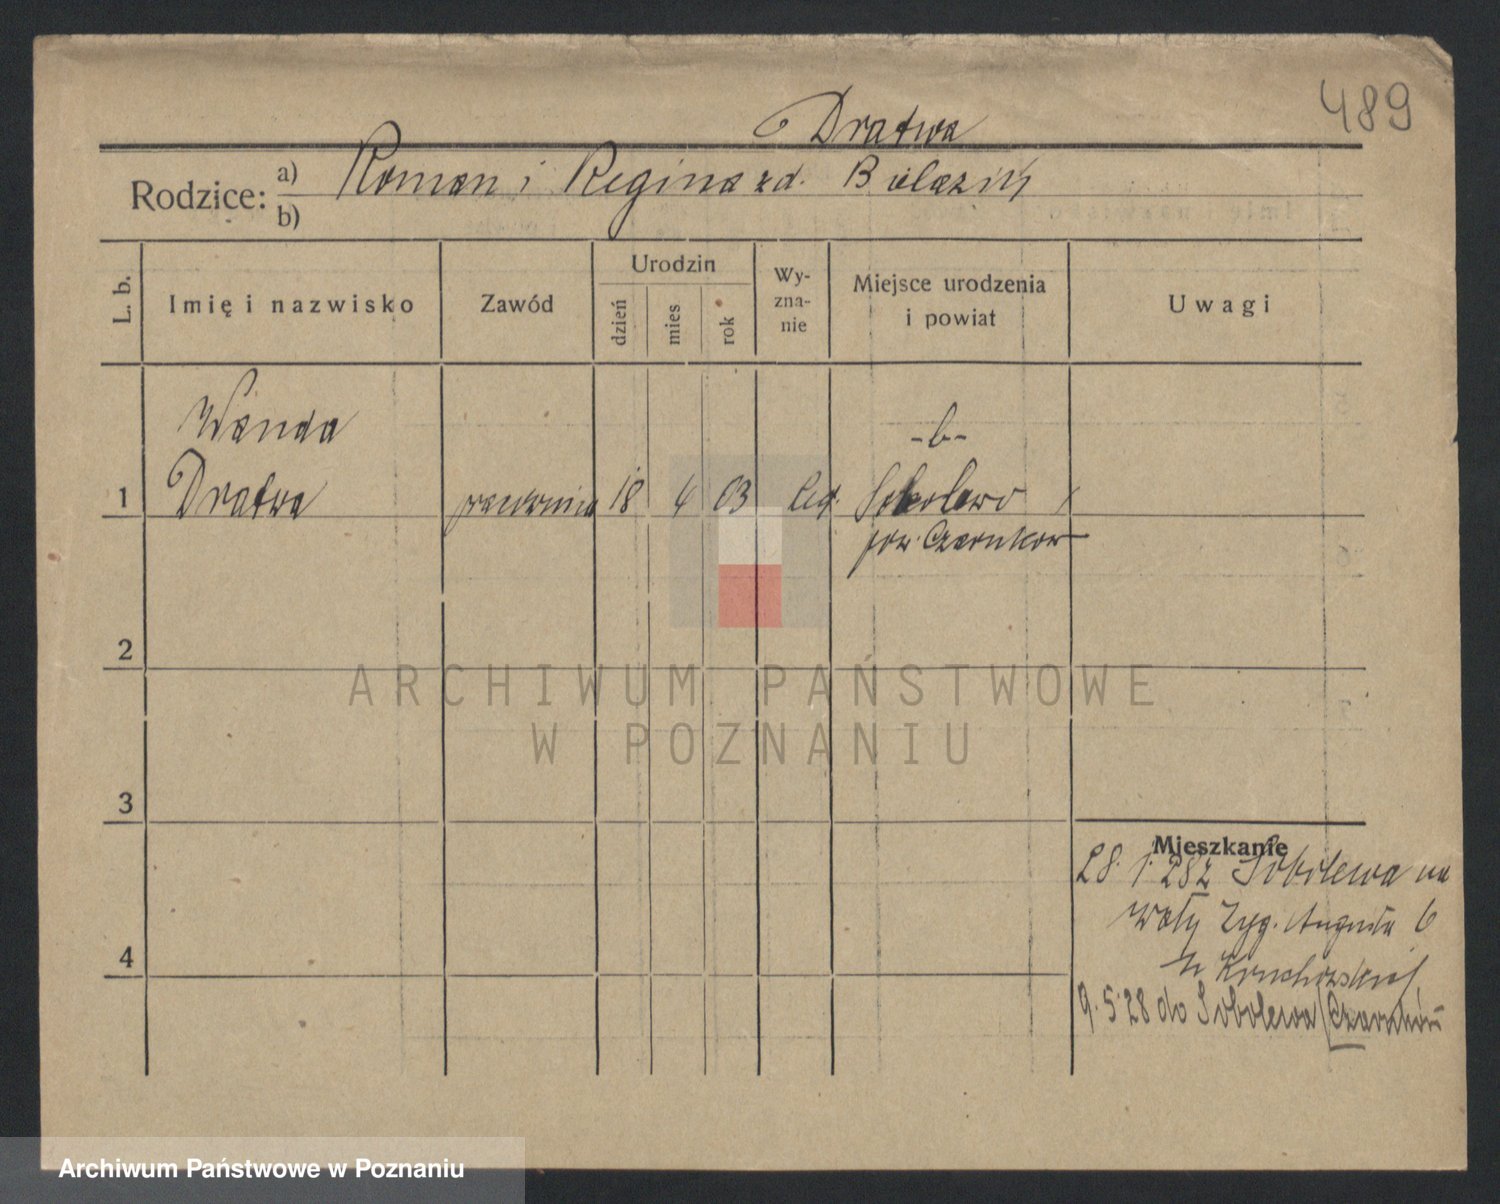 489
Dratwa
Rodzice: a) Roman i Regina zd.
b)
L. b.
Imię i nazwisko
Zawód
Urodzin
dzień
mies
rok
Wy-
zna-
nie
Miejsce urodzenia
i powiat
Uwagi
Wanda
-b-
1 Dratwa 18 4 03 Sokolewo
pow. Czarnkow
2
ARCHIWUM PAŃSTWOWE
W POZNANIU
3
Mieszkanie
28. 1. 28 z Sobolewa na
Wały Zyg. Augusta 6
9. 5. 28 do Sobolewa (Czarnków
4
Archiwum Państwowe w Poznaniu